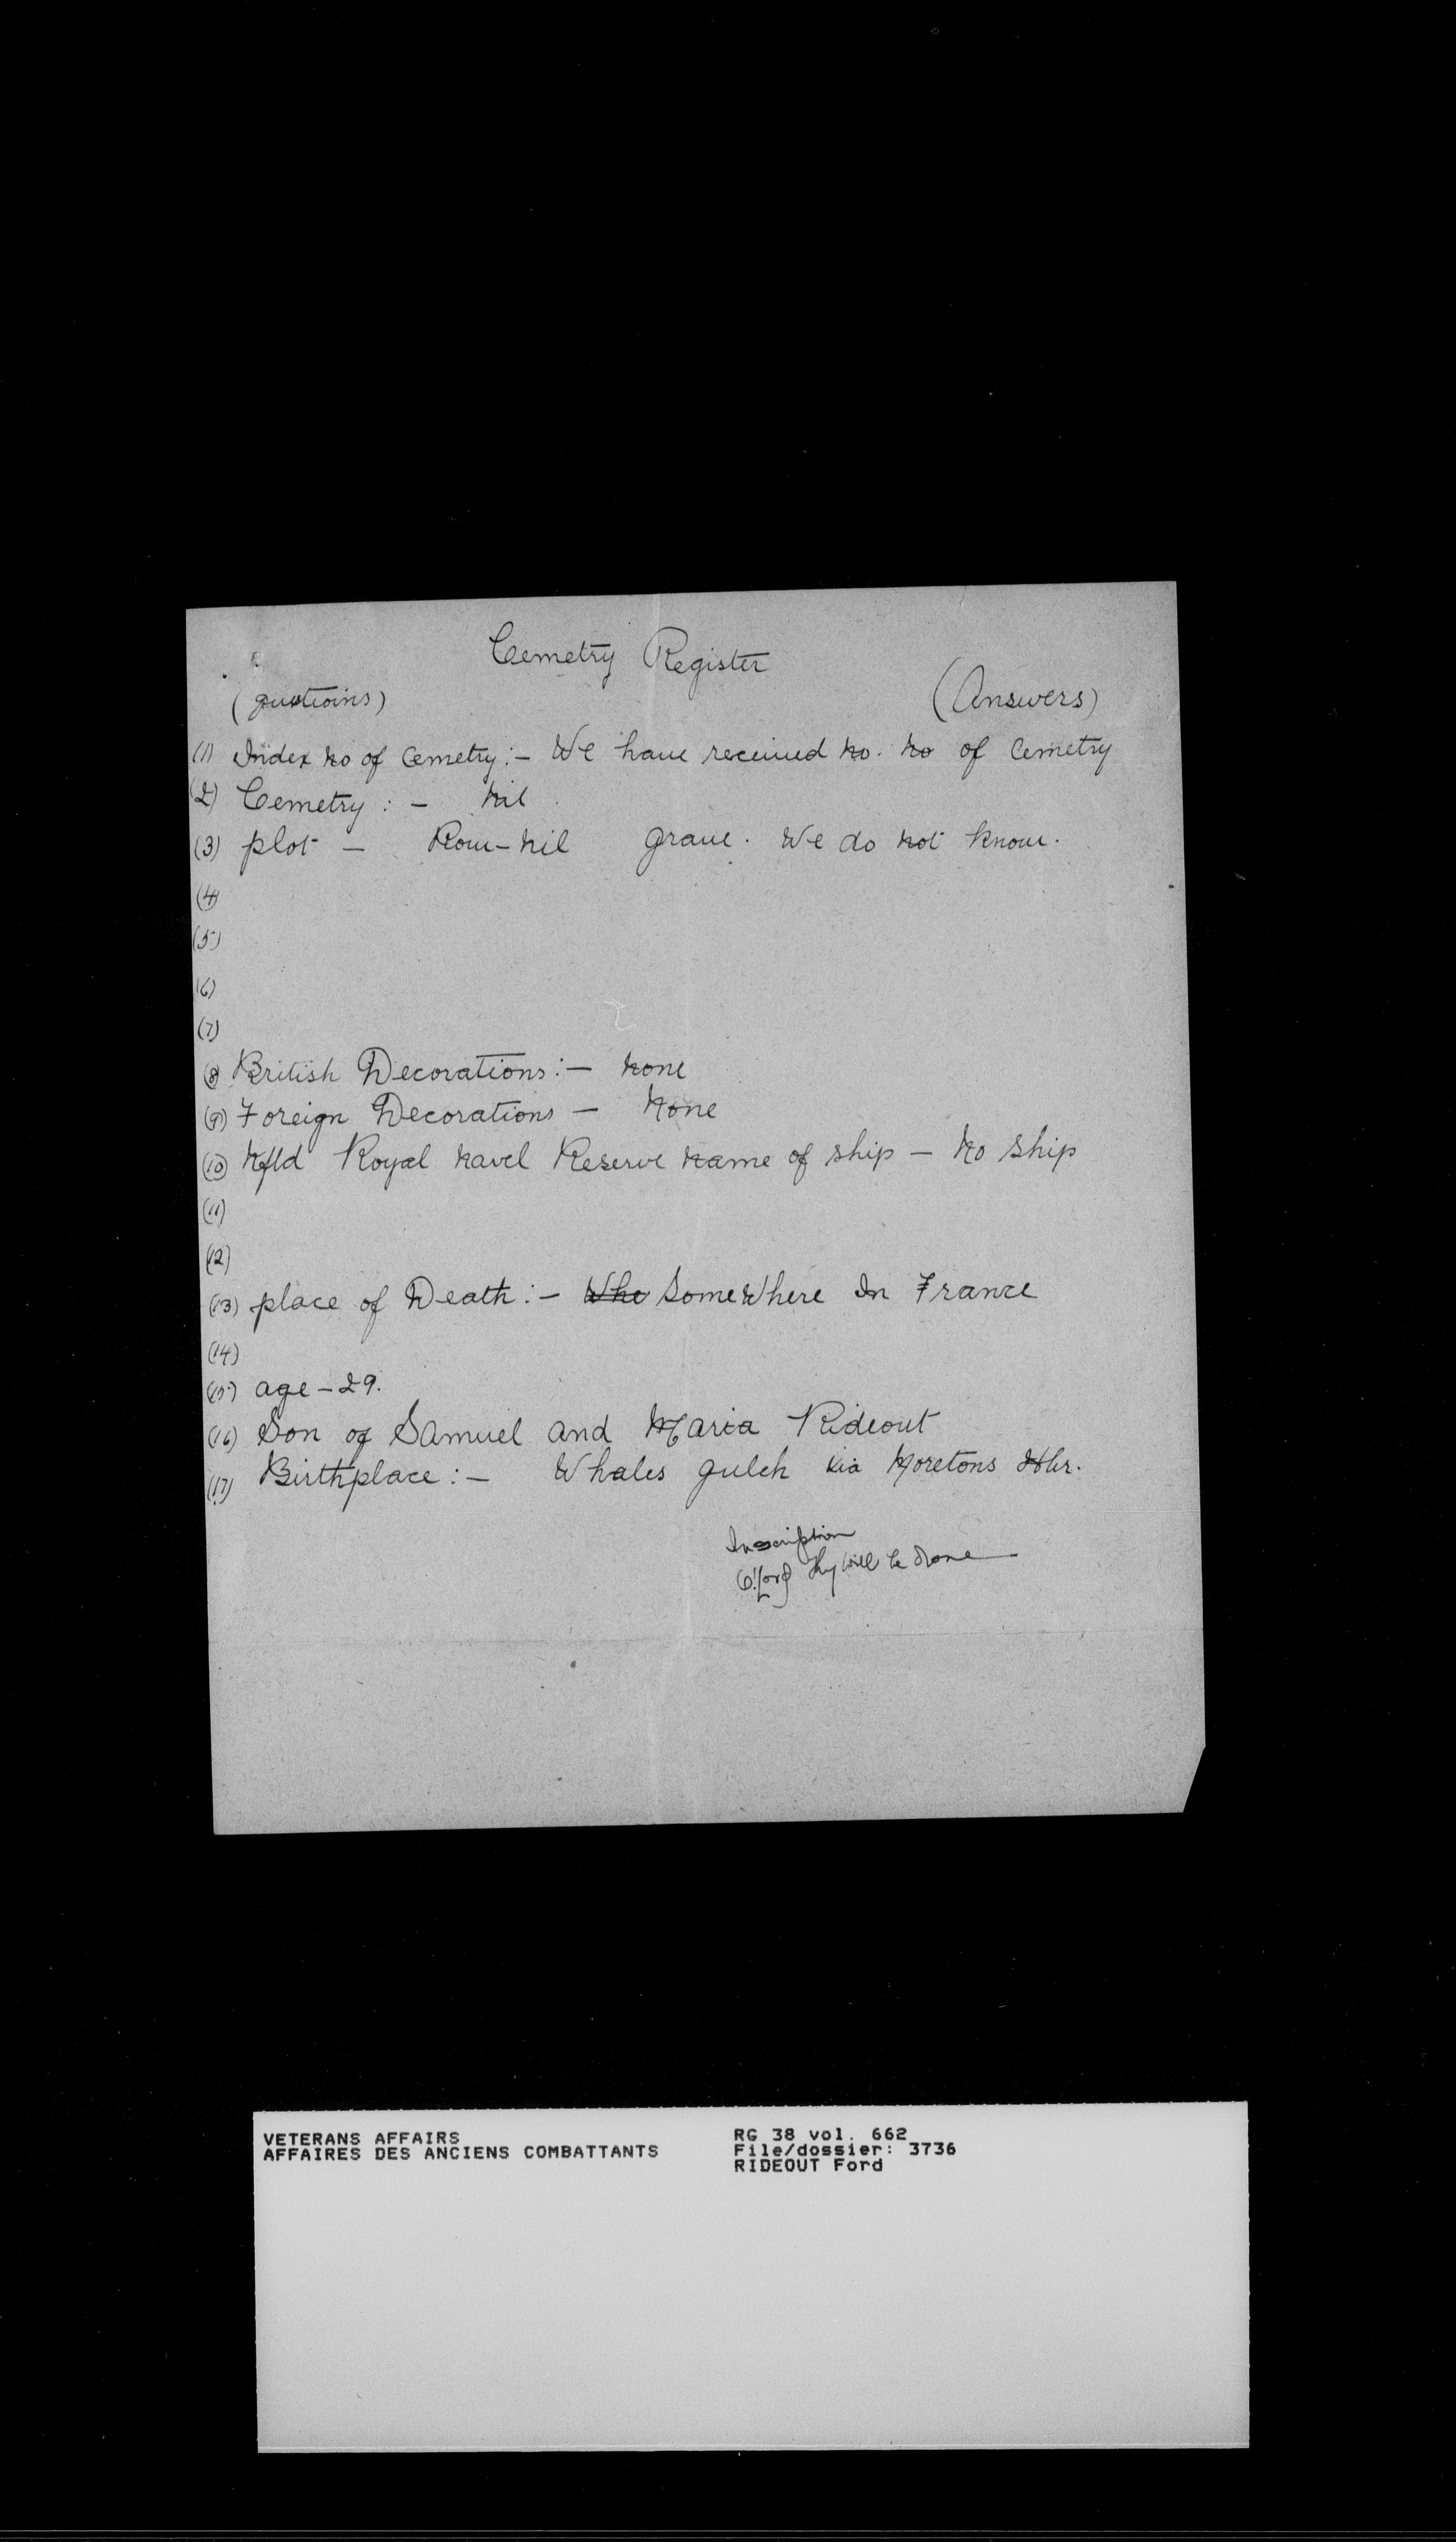 Cemetry Register
(questioins) (Answers)
(1) Index no of Cemetry:- We have received no. no of Cemetry
(2) Cemetry:- nil
(3) plot - Row-nil grave. We do not know.
(4)
(5)
(6)
(7)
(8) British Decorations:- none
(9) Foreign Decorations - None
(10) Nfld Royal navel Reserve name of ship - no ship
(11)
(12)
(13) place of Death:- Whe SomeWhere In France
(14)
(15) age - 29.
(16) Son of Samuel and Maria Rideout
(17) Birthplace:- Whales gulch via Moretons Hbr.
Inscription
O! Lord Thy will be done
VETERANS AFFAIRS RG 38 vol. 662
AFFAIRES DES ANCIENS COMBATTANTS File/dossier: 3736
RIDEOUT Ford